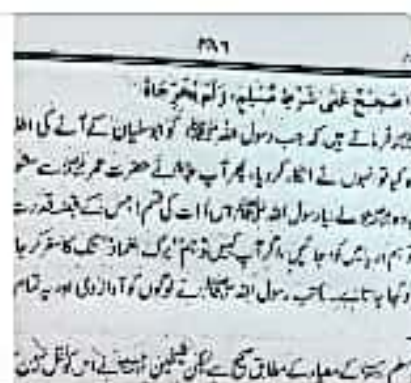 ۳۸٦
صَحِيحٌ عَلَى شَرْطِ مُسْلِمٍ، وَلَمْ يُخْرِجَاهُ
فرماتے ہیں کہ جب رسول اللہ ﷺ کو ابوسفیان کے آنے کی اطلا
تو انہوں نے انکار کر دیا، پھر آپ نے حضرت عمر سے مشو
بولے: یا رسول اللہ ﷺ اس ذات کی قسم! جس کے قبضہ قدرت
ہم دریا میں کود جائیں، اگر آپ کہیں تو ہم برک الغماد تک کا سفر کر جا
تب رسول اللہ ﷺ نے لوگوں کو آواز دی اور یہ تمام
مسلم کے معیار کے مطابق صحیح ہے لیکن شیخین نے اس کو نقل نہیں